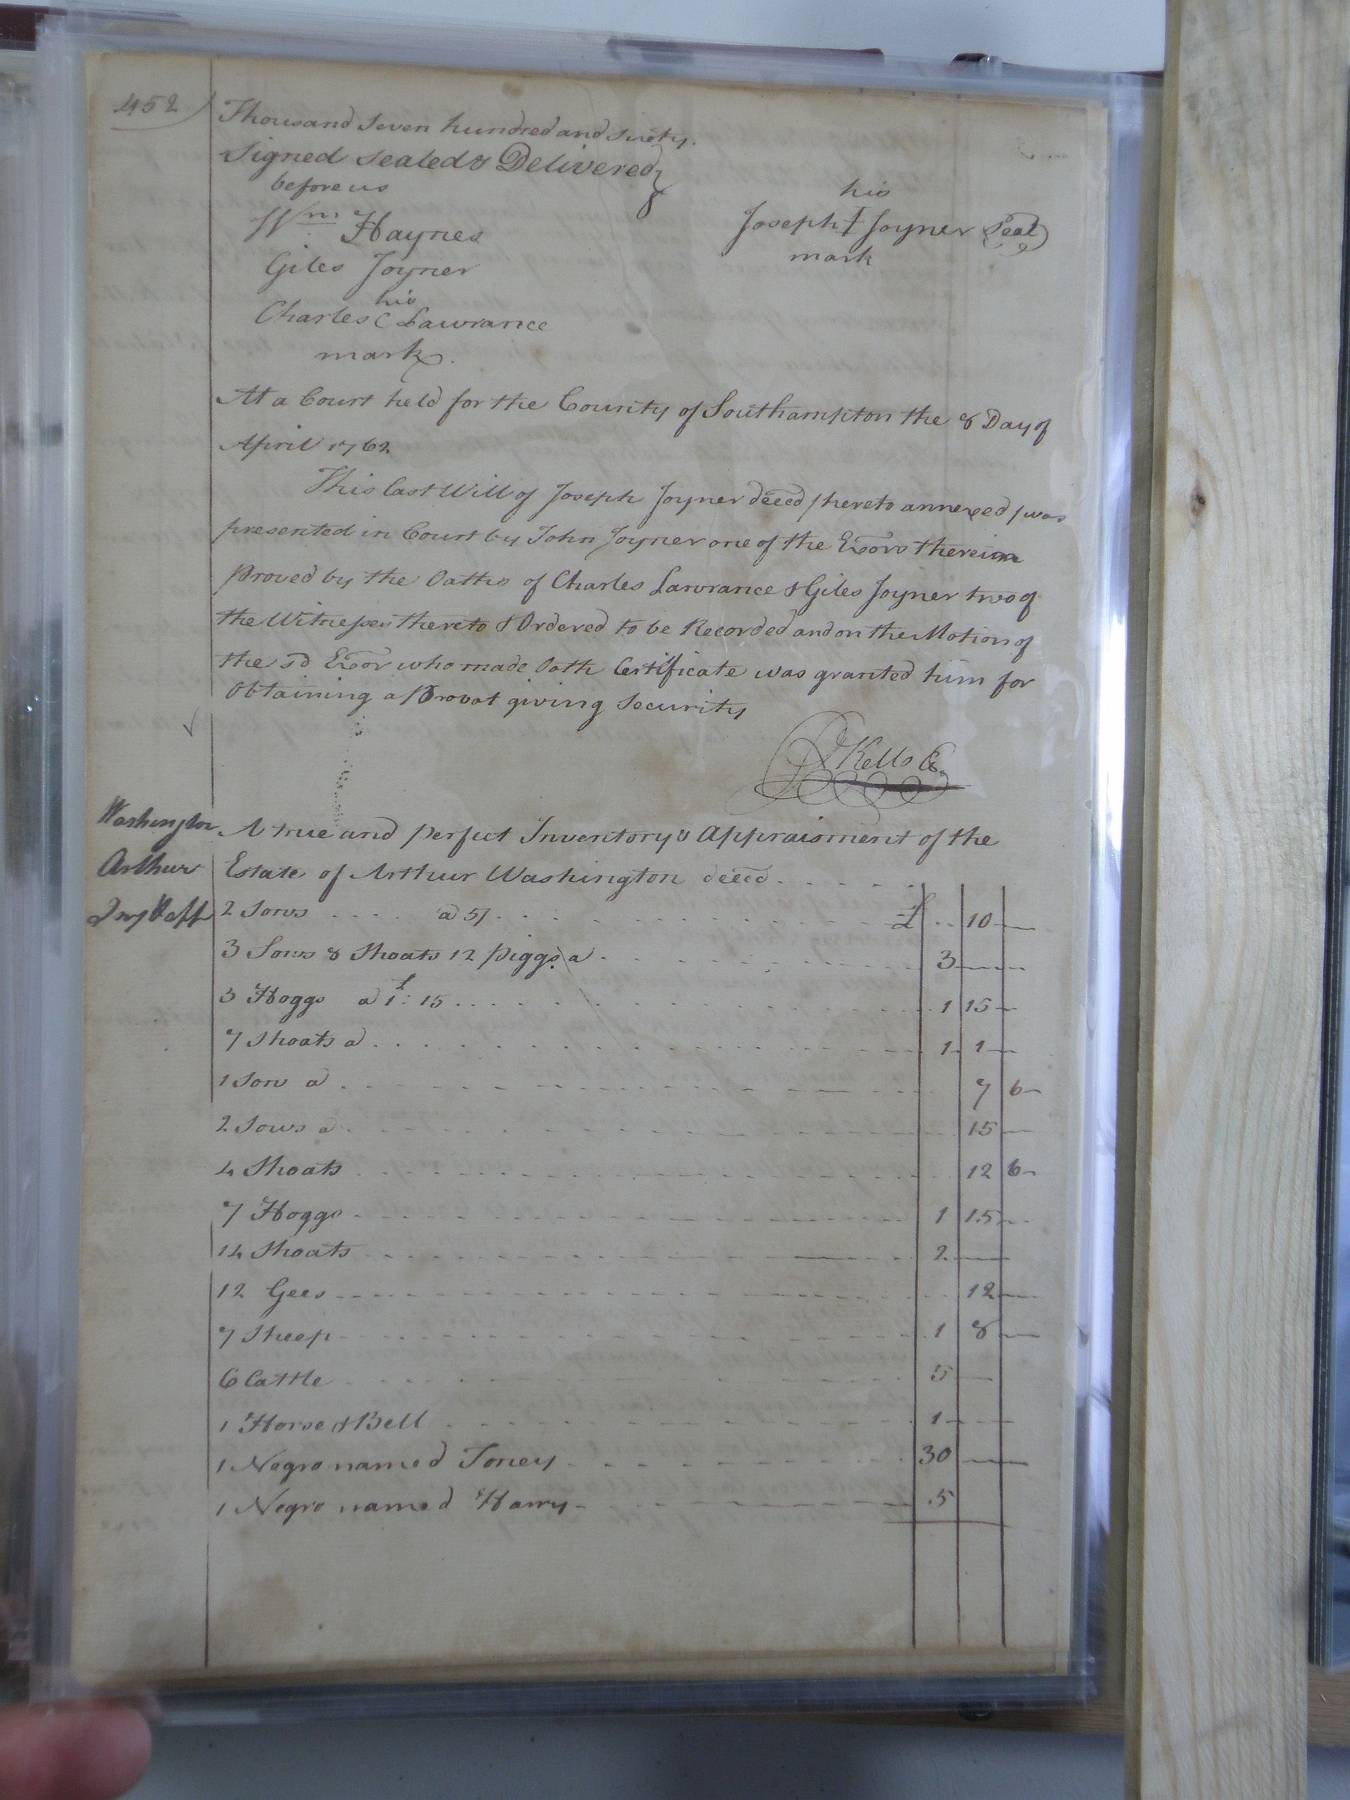 452
Thousand Seven hundred and Sixty.
Signed Sealed & Delivered
before us
his
Wm Haynes
Joseph I Joyner Seal
Giles Joyner
mark
his
Charles C Lawrance
mark.
At a Court held for the County of Southampton the 8 Day of
April 1762
This last Will of Joseph Joyner deced / hereto annexed / was
presented in Court by John Joyner one of the Exors therein
Proved by the Oaths of Charles Lawrance & Giles Joyner two of
the Witnesses thereto & Ordered to be Recorded and on the Motion of
the sd Exor who made Oath Certificate was granted him for
Obtaining a Probat giving Security
Kello
Washington
Arthur
A true and perfect Inventory & Appraisment of the
Estate of Arthur Washington deced
2 Sows a 5/ £ 10
3 Sows & Shoats 12 piggs a 3
3 Hoggs a £1: 15 1 15
7 Shoats a 1 1
1 Sow a 7 6
2 Sows a 15
4 Shoats 12 6
7 Hoggs 1 15
14 Shoats 2
12 Gees 12
7 Sheep 1 8
6 Cattle 5
1 Horse & Bell 1
1 Negro named Toney 30
1 Negro named Harry 5